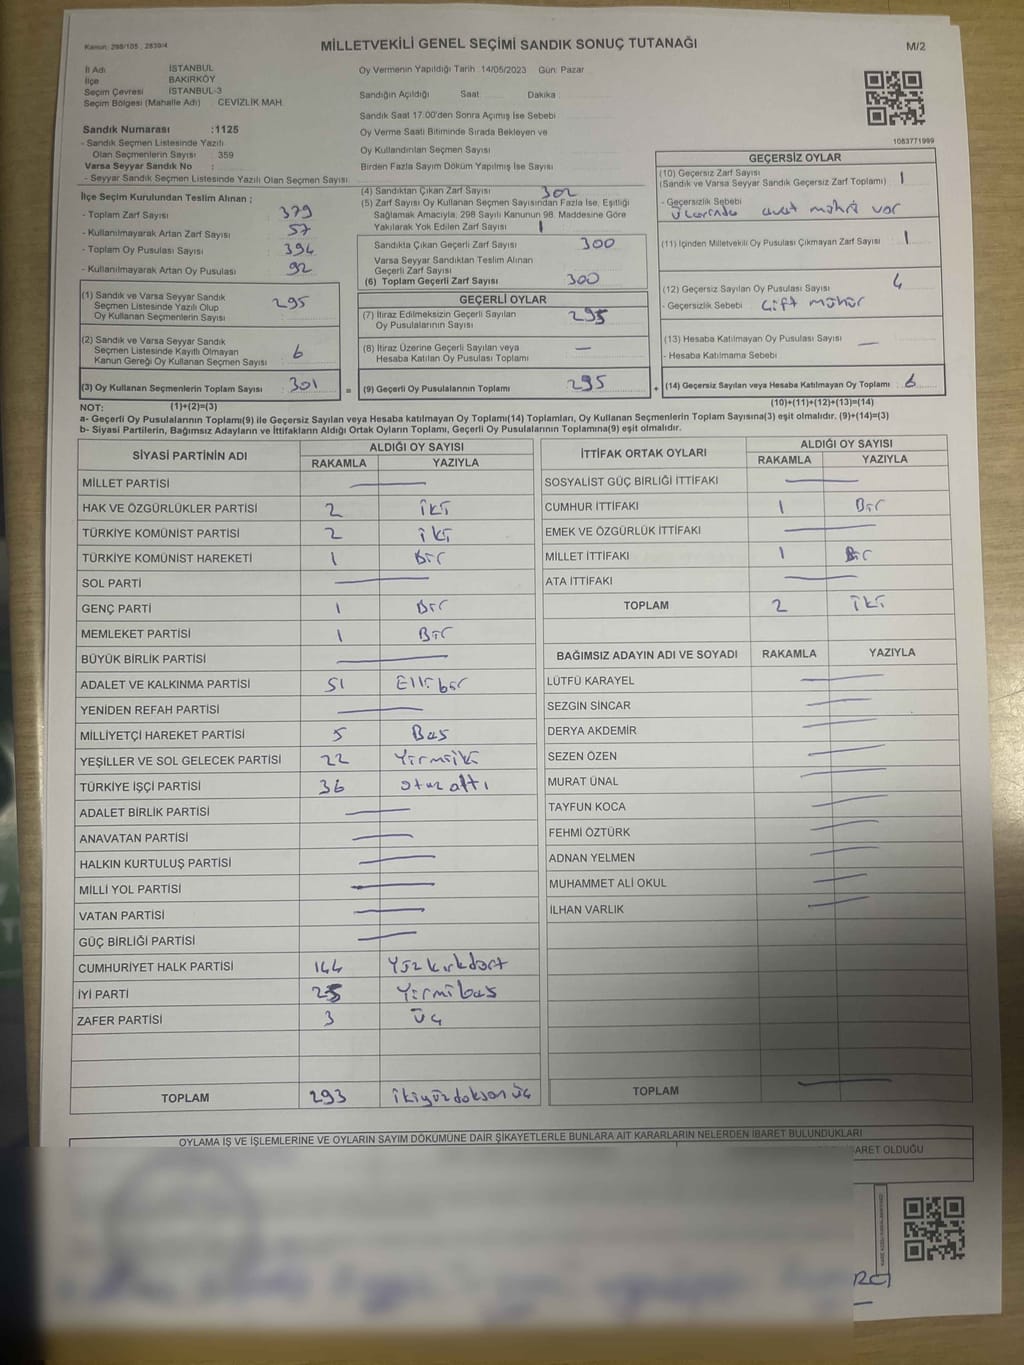 Kanun: 298/105 , 2839/4
MİLLETVEKİLİ GENEL SEÇİMİ SANDIK SONUÇ TUTANAĞI
M/2
İl Adı İSTANBUL
İlçe BAKIRKÖY
Seçim Çevresi İSTANBUL-3
Seçim Bölgesi (Mahalle Adı) CEVİZLİK MAH.
Sandık Numarası :1125
- Sandık Seçmen Listesinde Yazılı
Olan Seçmenlerin Sayısı : 359
Varsa Seyyar Sandık No :
- Seyyar Sandık Seçmen Listesinde Yazılı Olan Seçmen Sayısı
Oy Vermenin Yapıldığı Tarih 14/05/2023 Gün: Pazar
Sandığın Açıldığı Saat Dakika
Sandık Saat 17.00'den Sonra Açımış İse Sebebi
Oy Verme Saati Bitiminde Sırada Bekleyen ve
Oy Kullandırılan Seçmen Sayısı
Birden Fazla Sayım Döküm Yapılmış İse Sayısı
1083771999
İlçe Seçim Kurulundan Teslim Alınan ;
- Toplam Zarf Sayısı 379
- Kullanılmayarak Artan Zarf Sayısı 57
- Toplam Oy Pusulası Sayısı 394
- Kullanılmayarak Artan Oy Pusulası 92
(1) Sandık ve Varsa Seyyar Sandık
Seçmen Listesinde Yazılı Olup
Oy Kullanan Seçmenlerin Sayısı 295
(2) Sandık ve Varsa Seyyar Sandık
Seçmen Listesinde Kayıtlı Olmayan
Kanun Gereği Oy Kullanan Seçmen Sayısı 6
(3) Oy Kullanan Seçmenlerin Toplam Sayısı 301 =
(4) Sandıktan Çıkan Zarf Sayısı 302
(5) Zarf Sayısı Oy Kullanan Seçmen Sayısından Fazla İse, Eşitliği
Sağlamak Amacıyla; 298 Sayılı Kanunun 98. Maddesine Göre
Yakılarak Yok Edilen Zarf Sayısı 1
Sandıkta Çıkan Geçerli Zarf Sayısı 300
Varsa Seyyar Sandıktan Teslim Alınan
Geçerli Zarf Sayısı
(6) Toplam Geçerli Zarf Sayısı 300
GEÇERLİ OYLAR
(7) İtiraz Edilmeksizin Geçerli Sayılan
Oy Pusulalarının Sayısı 295
(8) İtiraz Üzerine Geçerli Sayılan veya
Hesaba Katılan Oy Pusulası Toplamı —
(9) Geçerli Oy Pusulalarının Toplamı 295 +
GEÇERSİZ OYLAR
(10) Geçersiz Zarf Sayısı
(Sandık ve Varsa Seyyar Sandık Geçersiz Zarf Toplamı) 1
- Geçersizlik Sebebi
Üzerinde evet mührü var
(11) İçinden Milletvekili Oy Pusulası Çıkmayan Zarf Sayısı 1
(12) Geçersiz Sayılan Oy Pusulası Sayısı 4
- Geçersizlik Sebebi Çift mühür
(13) Hesaba Katılmayan Oy Pusulası Sayısı —
- Hesaba Katılmama Sebebi
(14) Geçersiz Sayılan veya Hesaba Katılmayan Oy Toplamı 6
NOT: (1)+(2)=(3)
(10)+(11)+(12)+(13)=(14)
a- Geçerli Oy Pusulalarının Toplamı(9) ile Geçersiz Sayılan veya Hesaba katılmayan Oy Toplamı(14) Toplamları, Oy Kullanan Seçmenlerin Toplam Sayısına(3) eşit olmalıdır. (9)+(14)=(3)
b- Siyasi Partilerin, Bağımsız Adayların ve İttifakların Aldığı Ortak Oyların Toplamı, Geçerli Oy Pusulalarının Toplamına(9) eşit olmalıdır.
SİYASİ PARTİNİN ADI ALDIĞI OY SAYISI
RAKAMLA YAZIYLA
MİLLET PARTİSİ —
HAK VE ÖZGÜRLÜKLER PARTİSİ 2 iki
TÜRKİYE KOMÜNİST PARTİSİ 2 iki
TÜRKİYE KOMÜNİST HAREKETİ 1 Bir
SOL PARTİ —
GENÇ PARTİ 1 Bir
MEMLEKET PARTİSİ 1 Bir
BÜYÜK BİRLİK PARTİSİ —
ADALET VE KALKINMA PARTİSİ 51 Ellibir
YENİDEN REFAH PARTİSİ —
MİLLİYETÇİ HAREKET PARTİSİ 5 Beş
YEŞİLLER VE SOL GELECEK PARTİSİ 22 Yirmiiki
TÜRKİYE İŞÇİ PARTİSİ 36 otuz altı
ADALET BİRLİK PARTİSİ —
ANAVATAN PARTİSİ —
HALKIN KURTULUŞ PARTİSİ —
MİLLİ YOL PARTİSİ —
VATAN PARTİSİ —
GÜÇ BİRLİĞİ PARTİSİ —
CUMHURİYET HALK PARTİSİ 144 Yüzkırkdört
İYİ PARTİ 25 Yirmibeş
ZAFER PARTİSİ 3 Üç
TOPLAM 293 ikiyüzdoksan üç
İTTİFAK ORTAK OYLARI ALDIĞI OY SAYISI
RAKAMLA YAZIYLA
SOSYALİST GÜÇ BİRLİĞİ İTTİFAKI —
CUMHUR İTTİFAKI 1 Bir
EMEK VE ÖZGÜRLÜK İTTİFAKI —
MİLLET İTTİFAKI 1 Bir
ATA İTTİFAKI —
TOPLAM 2 iki
BAĞIMSIZ ADAYIN ADI VE SOYADI RAKAMLA YAZIYLA
LÜTFÜ KARAYEL —
SEZGİN SİNCAR —
DERYA AKDEMİR —
SEZEN ÖZEN —
MURAT ÜNAL —
TAYFUN KOCA —
FEHMİ ÖZTÜRK —
ADNAN YELMEN —
MUHAMMET ALİ OKUL —
İLHAN VARLIK —
TOPLAM —
OYLAMA İŞ VE İŞLEMLERİNE VE OYLARIN SAYIM DÖKÜMÜNE DAİR ŞİKAYETLERLE BUNLARA AİT KARARLARIN NELERDEN İBARET BULUNDUKLARI
ARET OLDUĞU